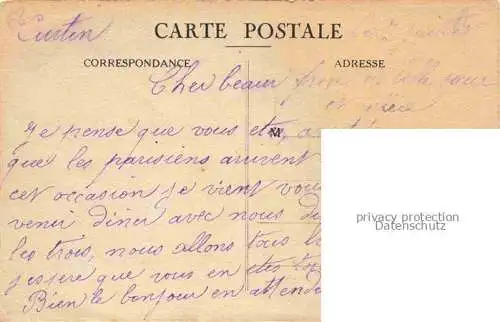 Curtin
CARTE POSTALE
CORRESPONDANCE
ADRESSE
Cher beau frère et belle sœur
et nièce
Je pense que vous etes
M
que les parisiens arrivent
cet occasion je vient vous
venir diner avec nous
les trois, nous allons tous
j'espere que vous en etes
Bien le bonjour en attend
privacy protection
Datenschutz